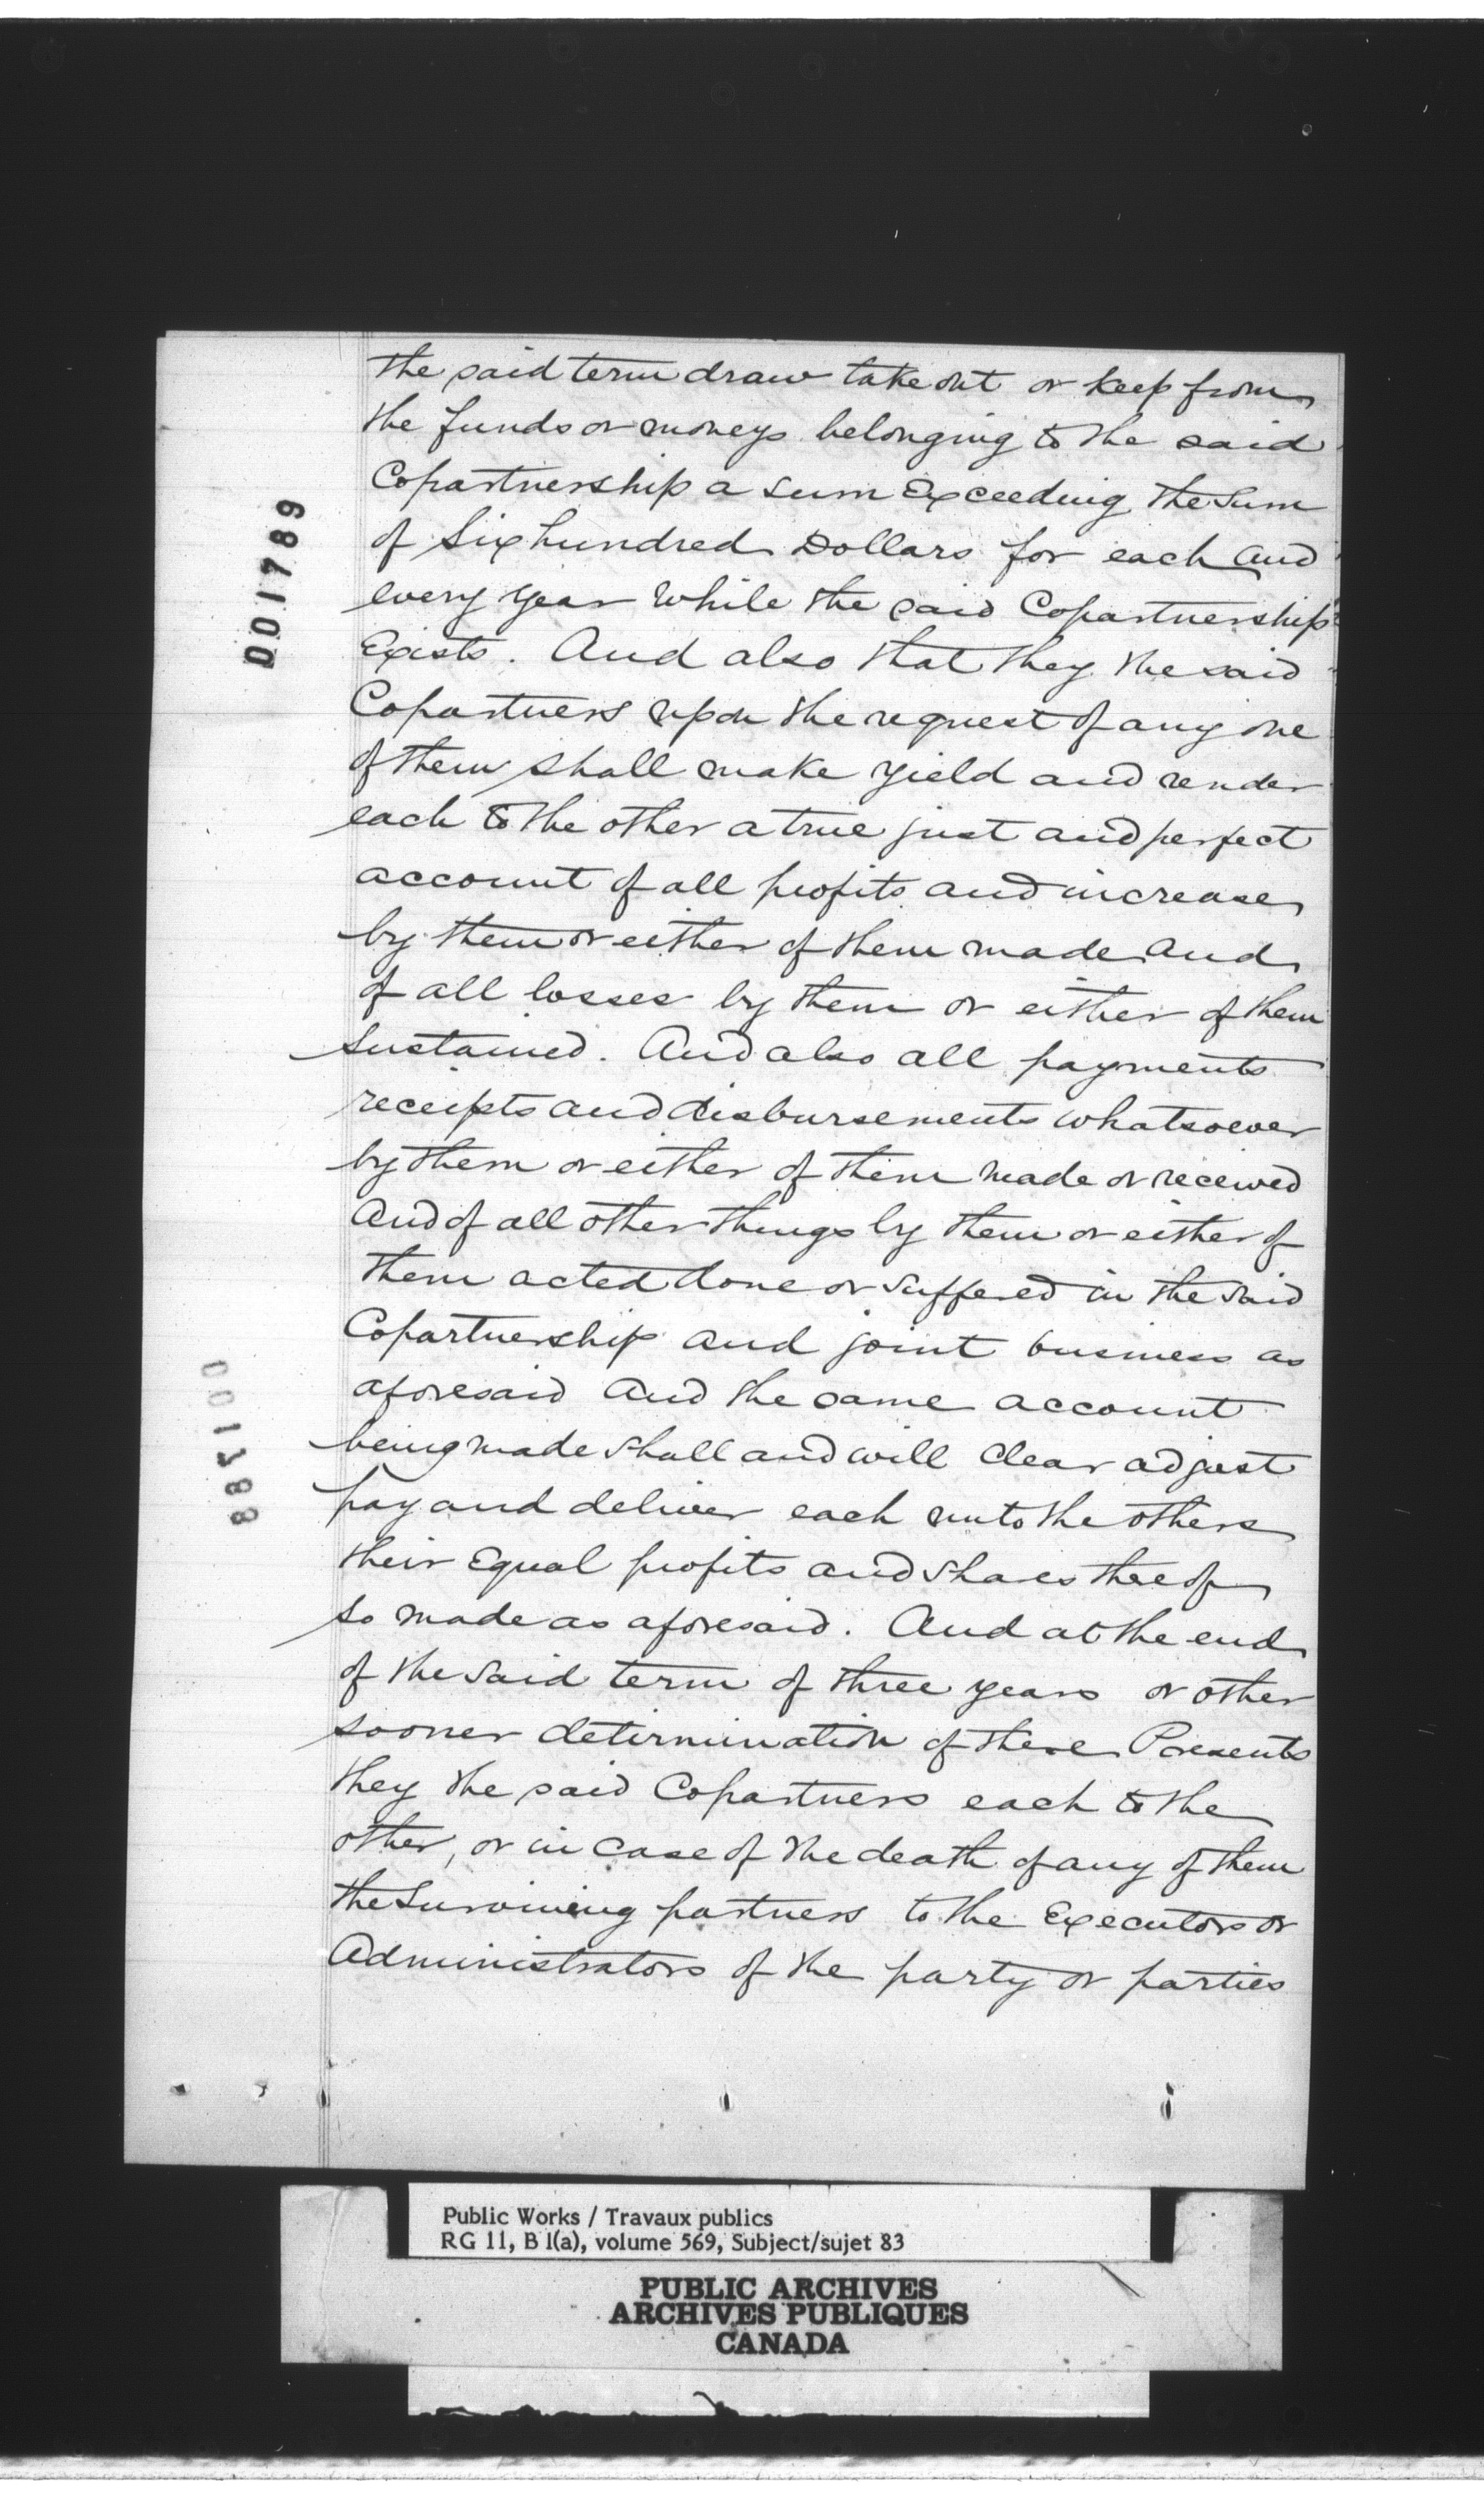 the said term draw take out or keep from
the funds or moneys belonging to the said
Copartnership a sum Exceeding the Sum
of Six hundred Dollars for each and
every year while the said Copartnership
Exists. And also that they the said
Copartners upon the request of any one
of them shall make yield and render
each to the other a true just and perfect
account of all profits and increase
by them or either of them made and
of all losses by them or either of them
Sustained. And also all payments
receipts and disbursements whatsoever
by them or either of them made or received
And of all other things by them or either of
them acted done or suffered in the said
Copartnership and joint business as
aforesaid And the same account
being made shall and will clear adjust
pay and deliver each unto the others
their Equal profits and shares thereof
so made as aforesaid. And at the end
of the said term of three years or other
sooner determination of these Presents
they the said Copartners each to the
other, or in case of the death of any of them
the Surviving partners to the Executors or
Administrators of the party or parties
001789
001788
Public Works / Travaux publics
RG 11, B 1(a), volume 569, Subject/sujet 83
PUBLIC ARCHIVES
ARCHIVES PUBLIQUES
CANADA